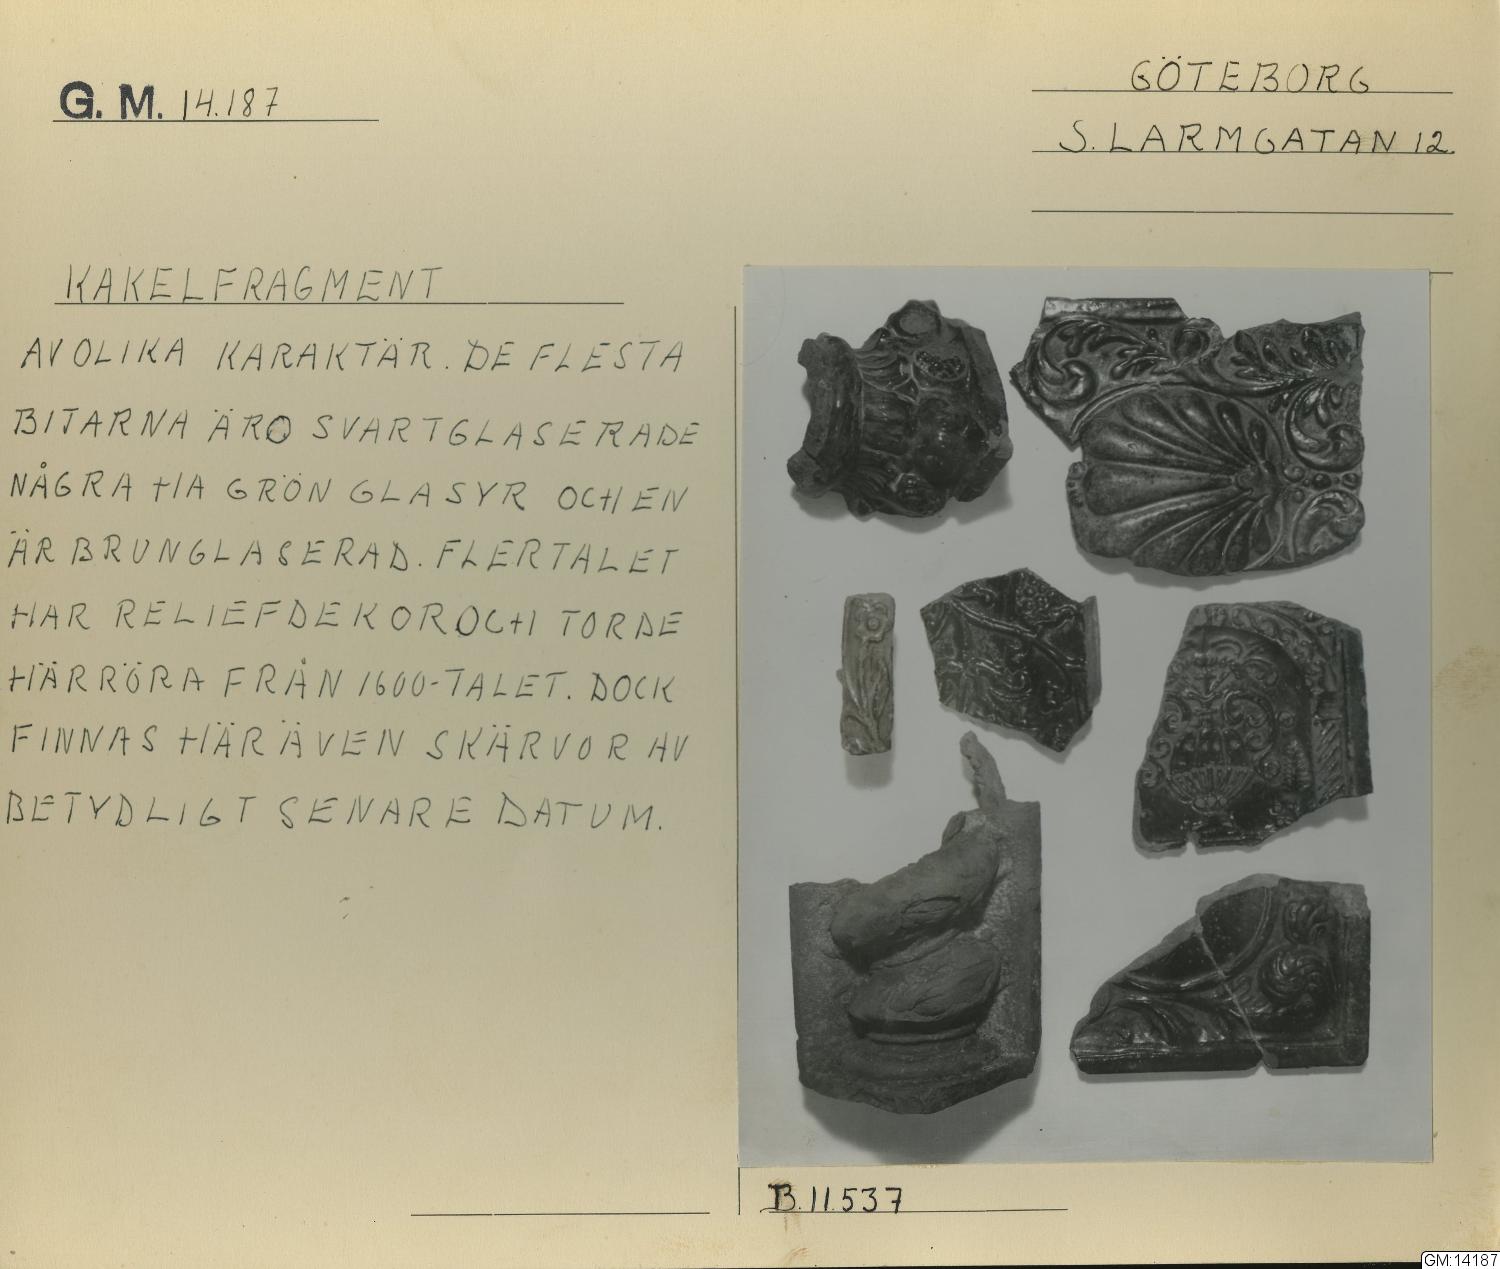 G.M. 14.187
GÖTEBORG
S. LARMGATAN 12.
KAKELFRAGMENT
AV OLIKA KARAKTÄR. DE FLESTA
BITARNA ÄRO SVARTGLASERADE
NÅGRA HA GRÖN GLASYR OCH EN
ÄR BRUNGLASERAD. FLERTALET
HAR RELIEFDEKOR OCH TORDE
HÄRRÖRA FRÅN 1600-TALET. DOCK
FINNAS HÄR ÄVEN SKÄRVOR AV
BETYDLIGT SENARE DATUM.
B.11.537
GM:14187